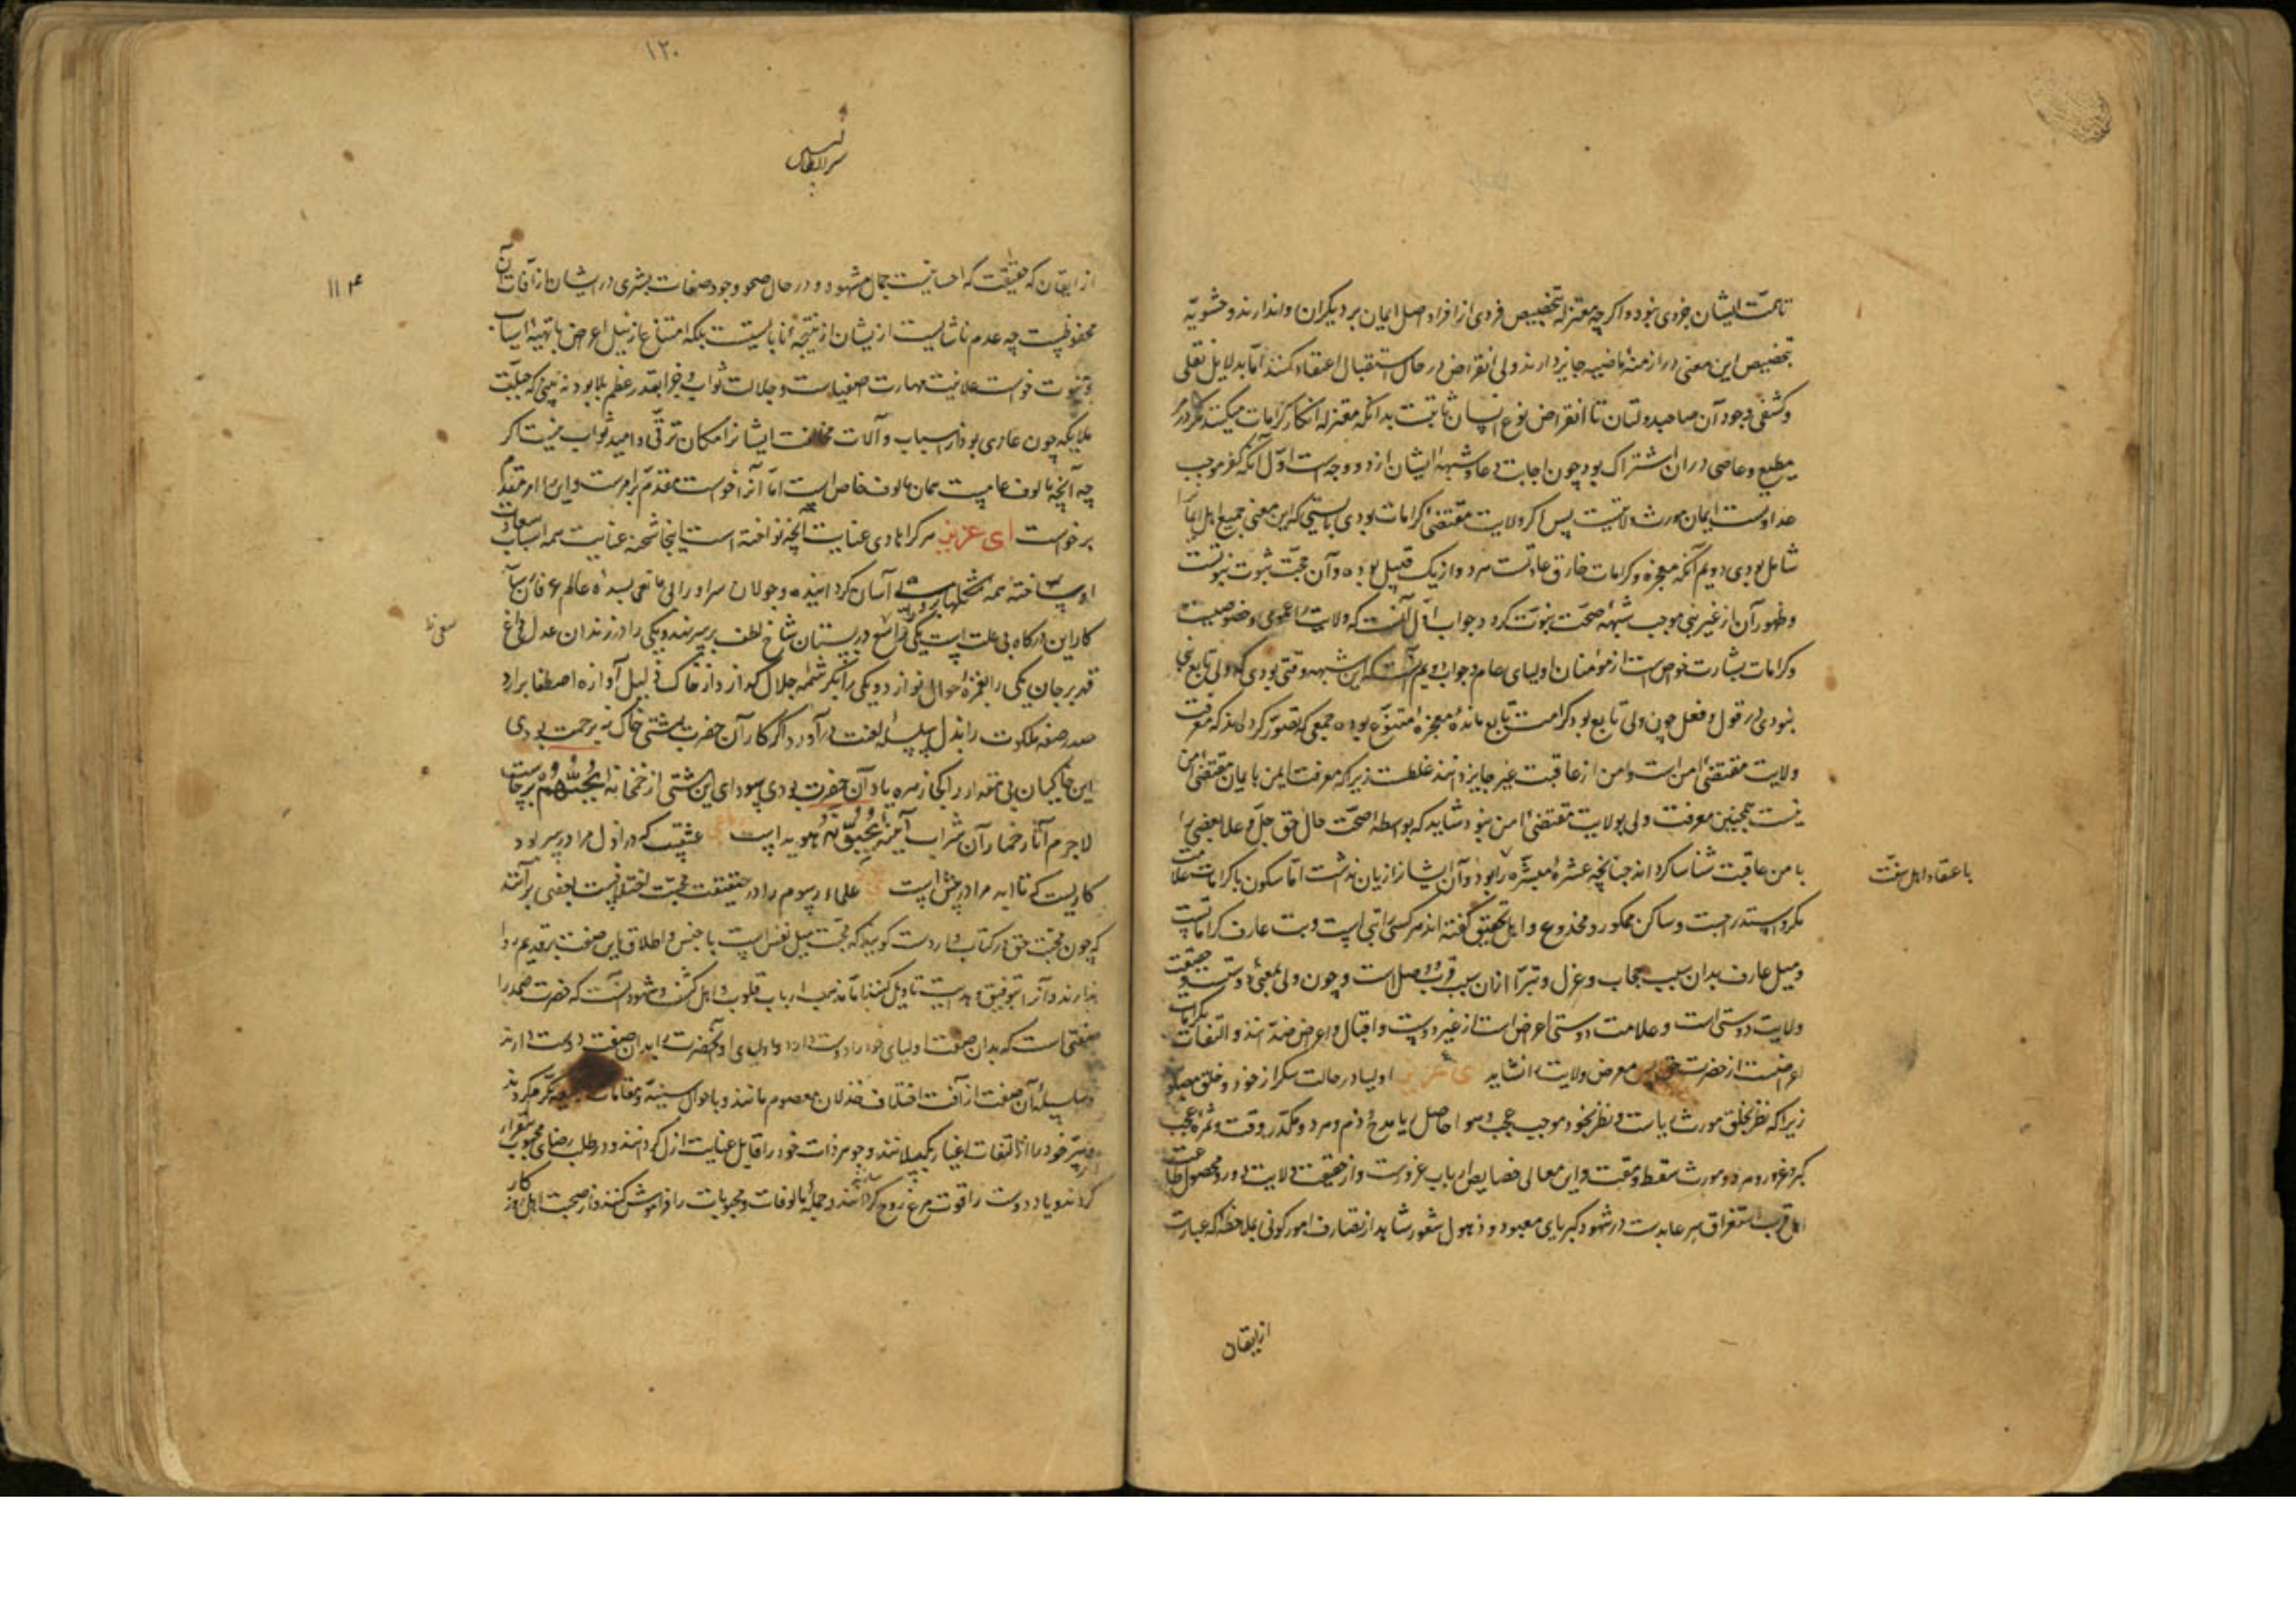 تا همت ایشان جزوی نبود و اگر چه معتزله تخصیص فردی از افراد اهل ایمان بر دیگران روا ندارند و حشویه
تخصیص این معنی در ازمنه ماضیه جایز دارند ولی انقراض در حال و استقبال اعتقاد کنند اما بدلایل نقلی
و کشفی وجود آن صاحبدولتان تا انقراض نوع انسان ثابتست بدانکه معتزله انکار کرامات میکنند مگر در
مطیع و عاصی در ان اشتراک بود چون اجابت دعا و شبهه ایشان از دو وجه است اول آنکه کفر موجب
عداوتست ایمان مورث ولایت پس اگر ولایت مقتضی کرامات بودی بایستی که این معنی جمیع اهل ایمان را
شامل بودی دویم آنکه معجزه و کرامات خارق عادتست هر دو از یک قبیل بوده و آن حجت ثبوت نبوتست
و ظهور آن از غیر نبی موجب شبهه صحت نبوت گردد جواب اول آنست که ولایت را عمومی و خصوصیست
و کرامات بشارت خواص است از مومنان اولیای عام و جواب دویم آنست که این شبهه وقتی بودی که ولی تابع نبی
نبودی در قول و فعل چون ولی تابع بود کرامت تابع مانده معجزه متبوع بوده جمعی که تصور کرده اند که معرفت
ولایت مقتضی امن است و امن از عاقبت غیر جایز دانند غلطست زیرا که معرفت ایمن با یمان مقتضی امن
نیست همچنین معرفت ولی بولایت مقتضی امن نبود شاید که بواسطه صحت حال حق جل و علا بعضی را
با من عاقبت شناسا کرد اند چنانچه عشره مبشره را بود و آن ایشانرا زیان نداشت اما سکون با کرامات علامت
مکر و استدراجست و ساکن ممکور و مخدوع و اهل تحقیق گفته اند هر کسی را بتی است و بت عارف کراماتست
و میل عارف بدان سبب حجاب و عزل و تبرا از ان سبب قرب وصل است و چون ولی بمعنی دوست و حقیقت
ولایت دوستی است و علامت دوستی اعراض است از غیر دوست و اقبال و اعراض ضد انند و التفات بکرامات
اعراضست از حضرت حق پس معرض ولایت را نشاید ای عزیز اولیا در حالت سکر از خود و خلق
زیرا که نظر بخلق مورث ریاست و نظر بخود موجب عجب و هوا حاصل ریا مدح و ذم و مرد و مکدر وقت و ثمره عجب
کبر و غرور و هر دو مورث سقط و مقت و این معانی خصایص ارباب غرورست و از حقیقت ولایت دور و محصول طاعت
اهل قرب استغراق سر عابدست در شهود کبریای معبود و ذهول شعور شاهد از تصارف امور کونی بملاحظه که عبارت
از ایقان
با عتقاد اهل سنت
۱۲۰
سر الطالبین
۱۱۴
از ایقان که حقیقت که احسانیست جمال مشهود و در حال صحو وجود صفات بشری در ایشان از آفات آن
محفوظست چه عدم ناشایست از ایشان از نتیجه نابایستیست بلکه امتناع از نیل اعراض با تهیه اسباب
و ثبوت خواست علانیت مهارت صفیاست و جلالت ثواب و جزا بقدر عظم بلا بود نه بینی که جبلت
ملایکه چون عاری بود از اسباب و آلات مخالفت ایشانرا امکان ترقی و امید ثواب نیست اگر
چه آنچه مالوف عامیست همان مالوف خاص است اما آنرا خواست مقدم بر امرست و این را امر مقدم
بر خواست ای عزیز هر کرا هادی عنایت الخ نواخته است اینجا شحنه عنایت همه اسباب سعادت
او ساخته همه مشکلها بر وی آسان گردانیده و جولان سر او را بی مانعی بسده عالم عرفان رسانیده
کار این درگاه بی علت است یکی را در بستان شاخ لطف بر سر نهد و یکی را در زندان عدل داغ
قهر بر جان یکی را بغمزه احوال نوازد و یکی را بکرشمه جلال گدازد از خاک ذلیل آوازه اصطفا برارد
صدر صفه ملکوت را بذل سلسله لعنت در آورد اگر کار آن حضرت بامشتی خاک نه برحمت بودی
این خاکیان بی مقدار را کجا زهره یاد آن حضرت بودی سودای این مشتی از خمخانه یحبهم برخاست
لاجرم آثار خمار آن شراب آینه یحبونه هویدا است عشقیست که در ازل مرا در سر بود
کاریست که تا ابد مرا در پیش است علماء رسوم را در حقیقت محبت اختلافیست بعضی برآنند
که چون محبت حق در کتاب واردست گویند که محبت میل نفس است با جنس و اطلاق این صفت بر قدیم روا
ندارند و آنرا بتوفیق و هدایت تاویل کنند اما مذهب ارباب قلوب و اهل کشف و شهود آنست که حضرت صمد را
صفتی است که بدان صفت اولیای خود را دوست دارد و اولیای او آنحضرت را بدان صفت دوست دارند
وسیله آن صفت از آفت اختلاف خذلان معصوم مانند و باحوال سنیه و مقامات مکرم گردند
و سر خود را از التفات اغیار بگسلانند و جوهر ذات خود را قابل عنایت ازل گردانند و در طلب رضای محبوب بیقرار
گردند و یاد دوست را قوت مرغ روح گردانند و جمله مالوفات و محبوبات را فراموش کنند و از صحبت اهل روزگار